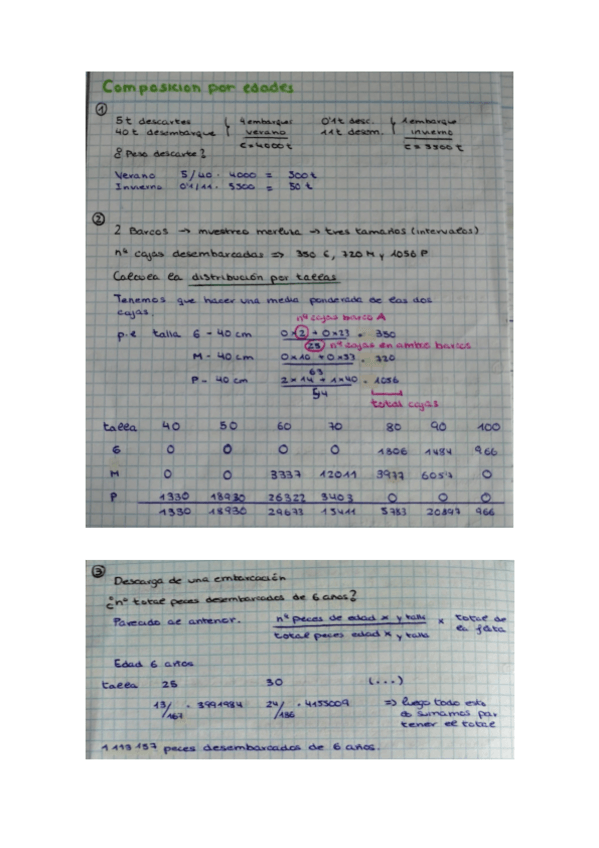 Composicion por edades
①
5t descartes 4 embarques 0'1t desc. 1 embarque
40 t desembarque verano 11t desem. invierno
C = 4000t C = 5500t
¿Peso descarte?
Verano 5/40 · 4000 = 500 t
Invierno 0'1/11 · 5500 = 50 t
②
2 Barcos → muestreo merluza → tres tamaños (intervalos)
nº cajas desembarcadas => 350 G, 720 M y 1056 P
Calcula la distribución por tallas
Tenemos que hacer una media ponderada de las dos
cajas.
nº cajas barco A
p.e talla G - 40 cm 0x2 + 0x23 · 350
25 nº cajas en ambos barcos
M - 40 cm 0x10 + 0x53 · 720
63
P - 40 cm 2x14 + 1x40 · 1056
54
total cajas
talla 40 50 60 70 80 90 100
G 0 0 0 0 1806 1484 966
M 0 0 3337 12011 3977 6057 0
P 1330 18930 26322 3403 0 0 0
1330 18930 29673 15411 5783 20897 966
③
Descarga de una embarcación
¿nº total peces desembarcados de 6 años?
Parecido al anterior. nº peces de edad x y talla x total de
total peces edad x y talla la flota
Edad 6 años
talla 25 30 (...)
13/167 · 3991984 24/186 · 4155009 => luego todo esto
lo sumamos par
tener el total
1 119 157 peces desembarcados de 6 años.